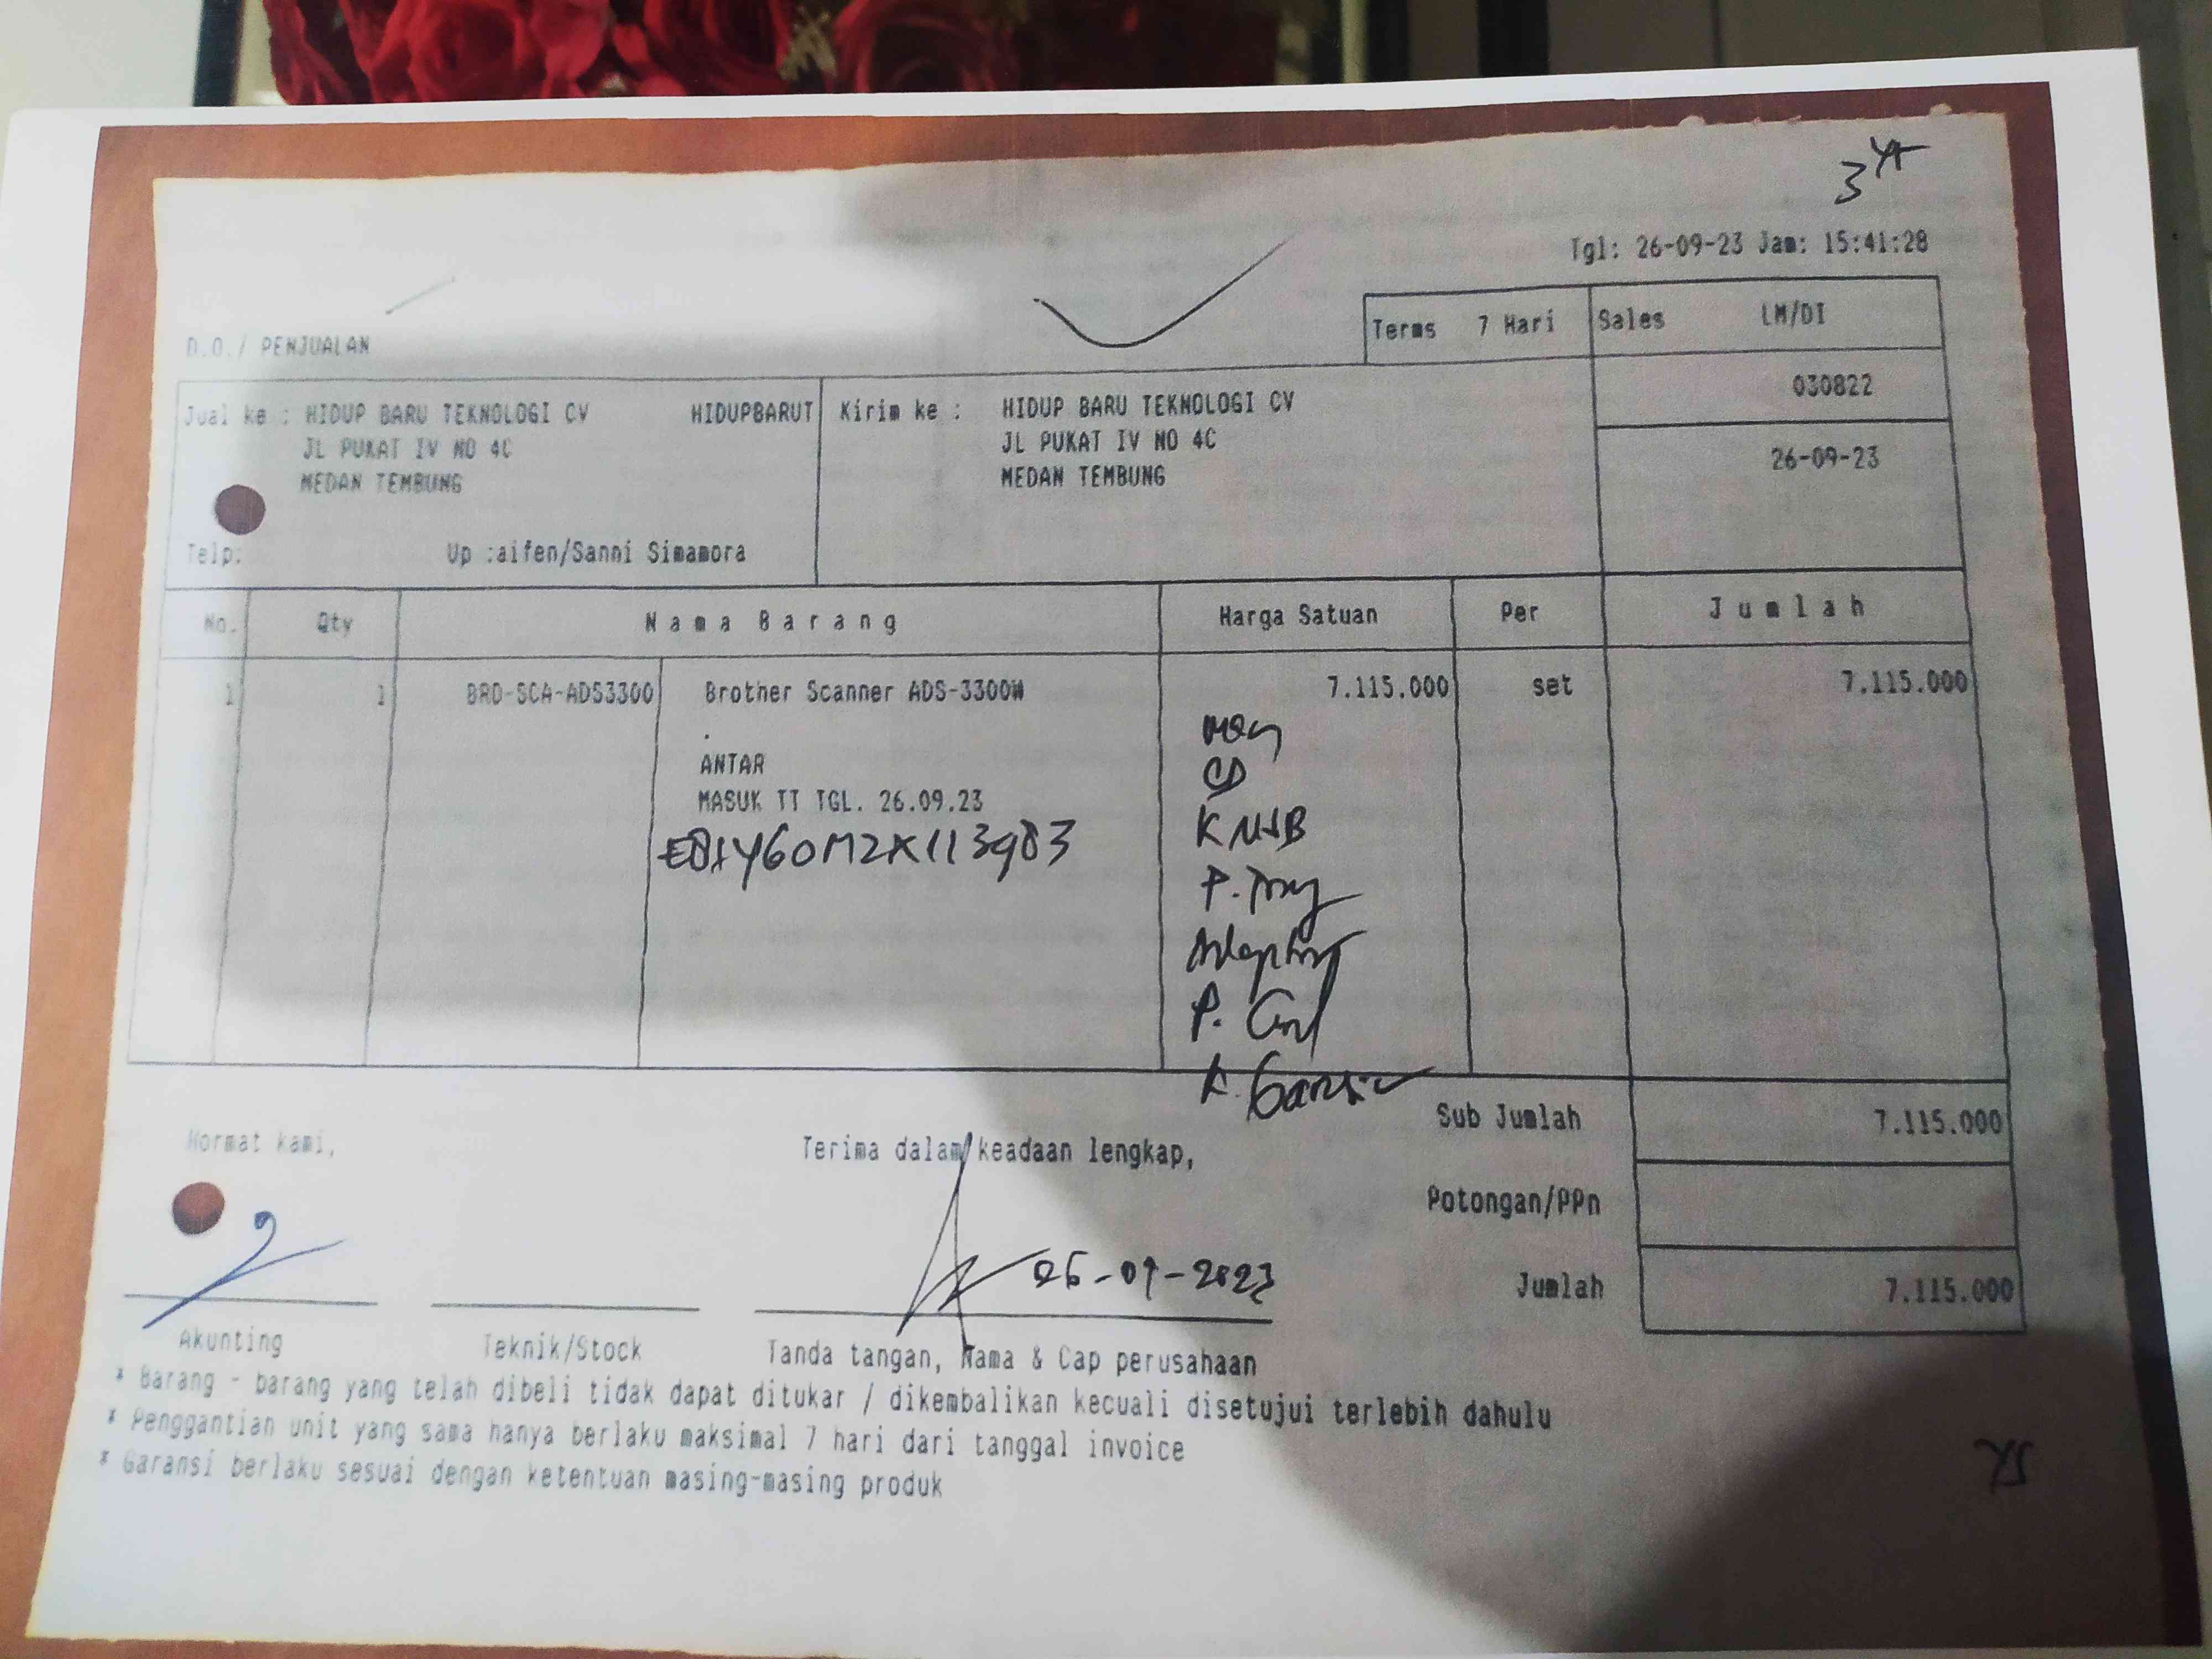 3 yr
Tgl: 26-09-23 Jam: 15:41:28
D.O./ PENJUALAN
Terms 7 Hari Sales LM/DI
030822
26-09-23
Jual ke : HIDUP BARU TEKNOLOGI CV HIDUPBARUT Kirim ke : HIDUP BARU TEKNOLOGI CV
JL PUKAT IV NO 4C JL PUKAT IV NO 4C
MEDAN TEMBUNG MEDAN TEMBUNG
Telp: Up :aifen/Sanni Simamora
No. Qty Nama Barang Harga Satuan Per Jumlah
1 1 BRO-SCA-ADS3300 Brother Scanner ADS-3300W 7.115.000 set 7.115.000
.
ANTAR
MASUK TT TGL. 26.09.23
CD
K USB
Adaptor
K. Garansi
Sub Jumlah 7.115.000
Potongan/PPn
Jumlah 7.115.000
Hormat kami, Terima dalam keadaan lengkap,
26-09-2023
Akunting Teknik/Stock Tanda tangan, Nama & Cap perusahaan
* Barang - barang yang telah dibeli tidak dapat ditukar / dikembalikan kecuali disetujui terlebih dahulu
* Penggantian unit yang sama hanya berlaku maksimal 7 hari dari tanggal invoice
* Garansi berlaku sesuai dengan ketentuan masing-masing produk